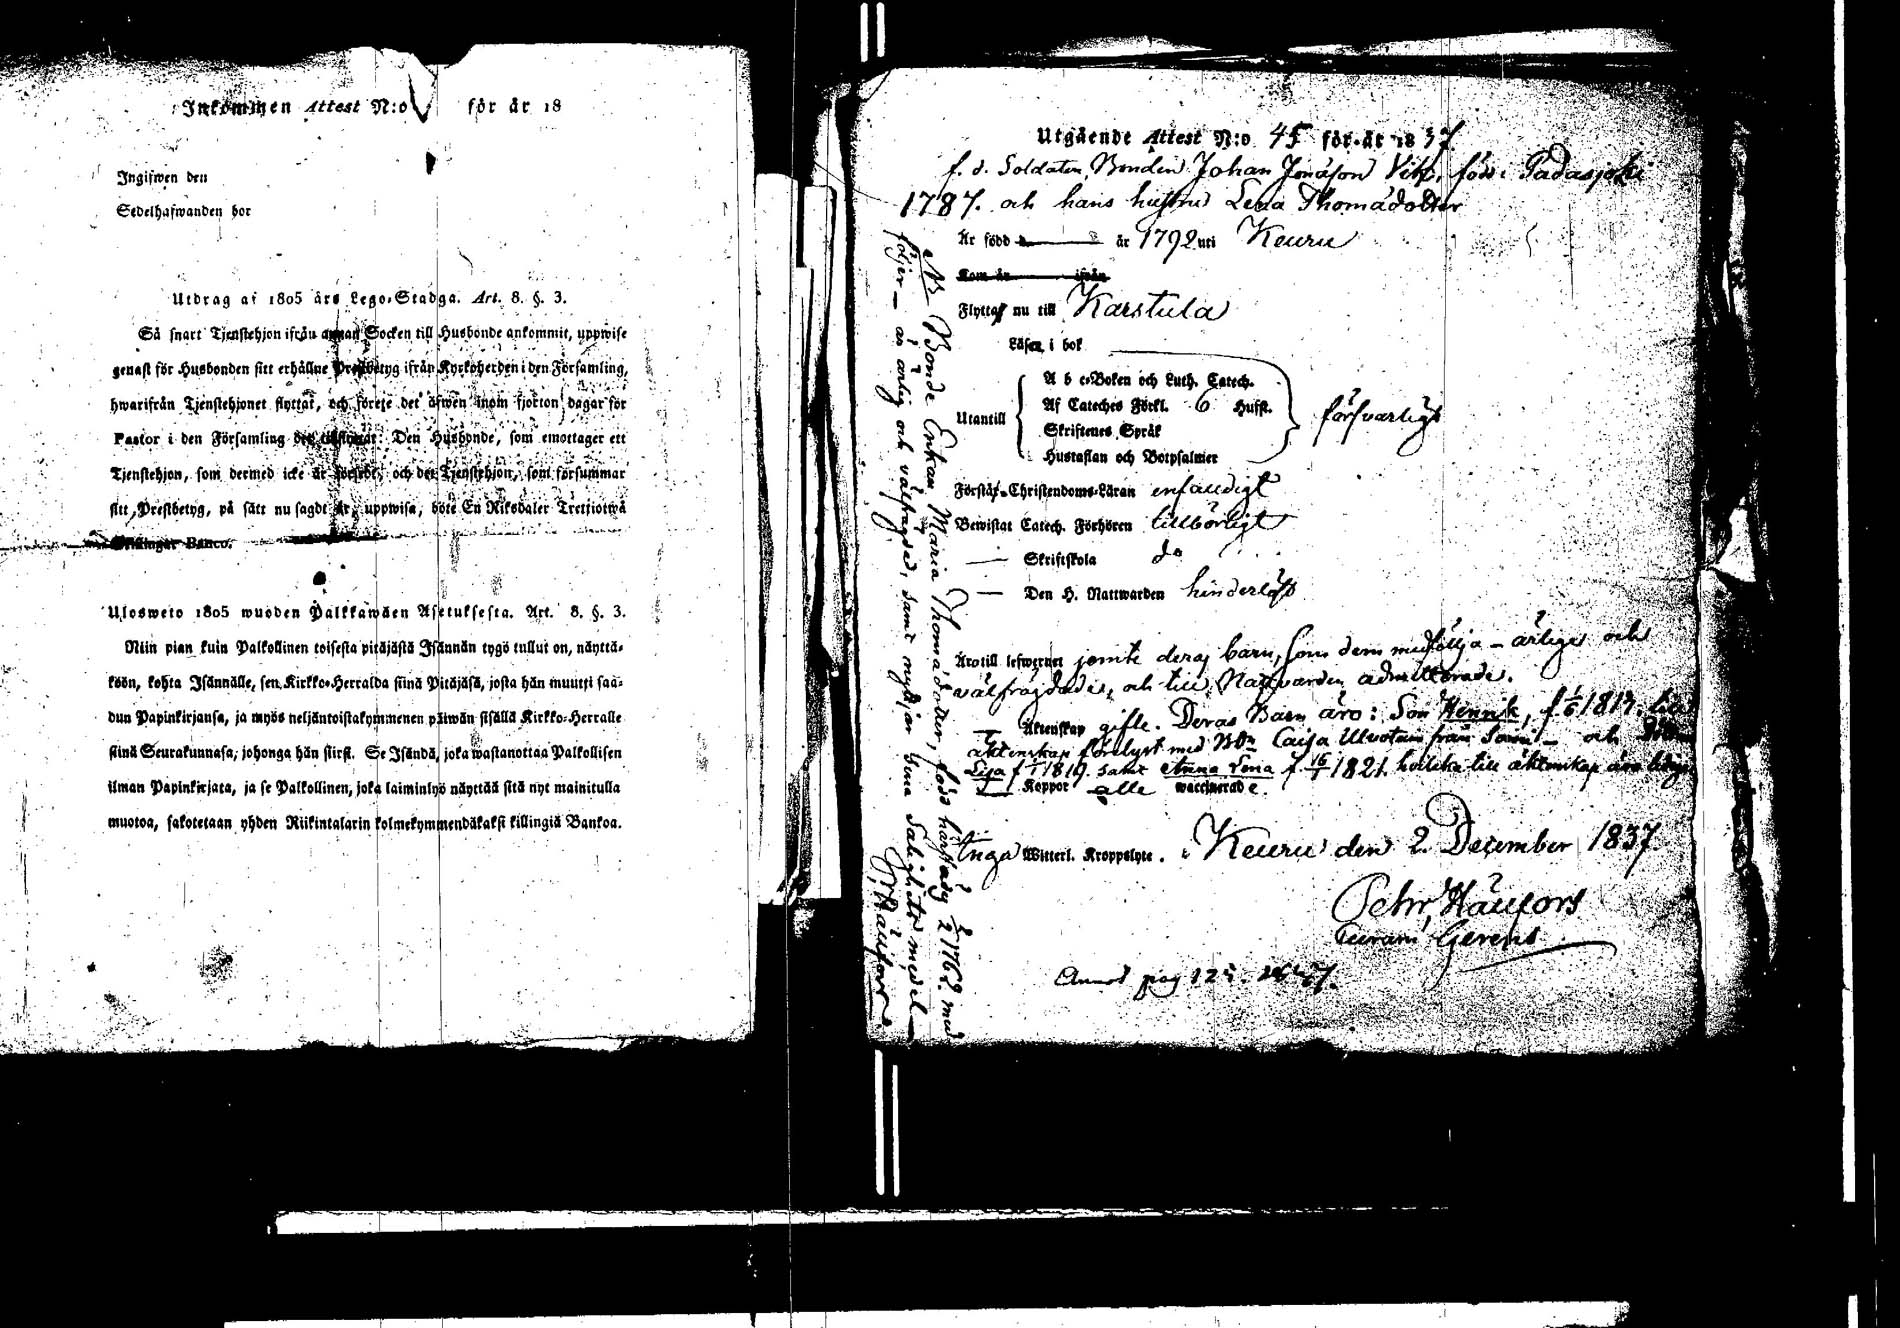 Inkommen Attest N:o för år 18
Ingifwen den
Sedelhafwanden bor
Utdrag af 1805 års Lego-Stadga. Art. 8. §. 3.
Så snart Tjenstehjon ifrån annan Socken till Husbonde ankommit, uppwise
genast för Husbonden sitt erhållne Prestbetyg ifrån Kyrkoherden i den Församling,
hwarifrån Tjenstehjonet flyttat, och förete det äfwen inom fjorton dagar för
Pastor i den Församling dit Den Husbonde, som emottager ett
Tjenstehjon, som dermed icke är försedt, och det Tjenstehjon, som försummar
sitt Prestbetyg, på sätt nu sagdt är, uppwisa, böte En Riksdaler Trettiotwå
Skillingar Banco.
Ulosweto 1805 wuoden Palkkawäen Asetuksesta. Art. 8. §. 3.
Niin pian kuin Palkollinen toisesta pitäjästä Isännän tygö tullut on, näyttä-
köön, kohta Isännälle, sen Kirkko-Herralda siinä Pitäjäsä, josta hän muutti saa-
dun Papinkirjansa, ja myös neljäntoistakymmenen päiwän sisällä Kirkko-Herralle
siinä Seurakunnasa, johonga hän siirsi. Se Isändä, joka wastanottaa Palkollisen
ilman Papinkirjata, ja se Palkollinen, joka laiminlyö näyttää sitä nyt mainitulla
muotoa, sakotetaan yhden Riikintalarin kolmekymmendäkaksi killingiä Bankoa.
Utgående Attest N:o 45 för år 1837
f. d. Soldaten, Bonden Johan Jonasson Vik, född i Padasjoki
1787. och hans hustru Lena Thomadotter
Är född år 1792 uti Keuru
Kom år ifrån
Flyttar nu till Karstula
Läser i bok
A b c-Boken och Luth. Catech.
Af Cateches Förkl. 6 Hufst.
Utantill försvarligt
Skriftenes Språk
Hustaflan och Botpsalmer
Förstår Christendoms-Läran enfaldigt
Bewistat Catech. Förhören tillbörligt
— Skriftskola do
— Den H. Nattwarden hinderlöst
Äro till lefwernet jemte deras barn, som dem medfölja – ärlige och
välfrägdade, och till Nattvarden admitterade.
Äktenskap gifte. Deras Barn äro: Son Henrik, f. 1817. till
äktenskap förelyst med Caisa från och
Lisa f 1819. samt Anna Lena f. 16 1821. hvilka till äktenskap äro lediga
Koppor alle waccinerade.
Inga Witterl. Kroppslyte. Keuru den 2. December 1837.
Petr. Häufors
Curam Gerens
Annot pag 125.
NB Bonde Enkan Maria Thomasdotter, född härstädes 1762. med
följer — är ärlig och välfrägdad, samt nyttjar sina Salighets medel —